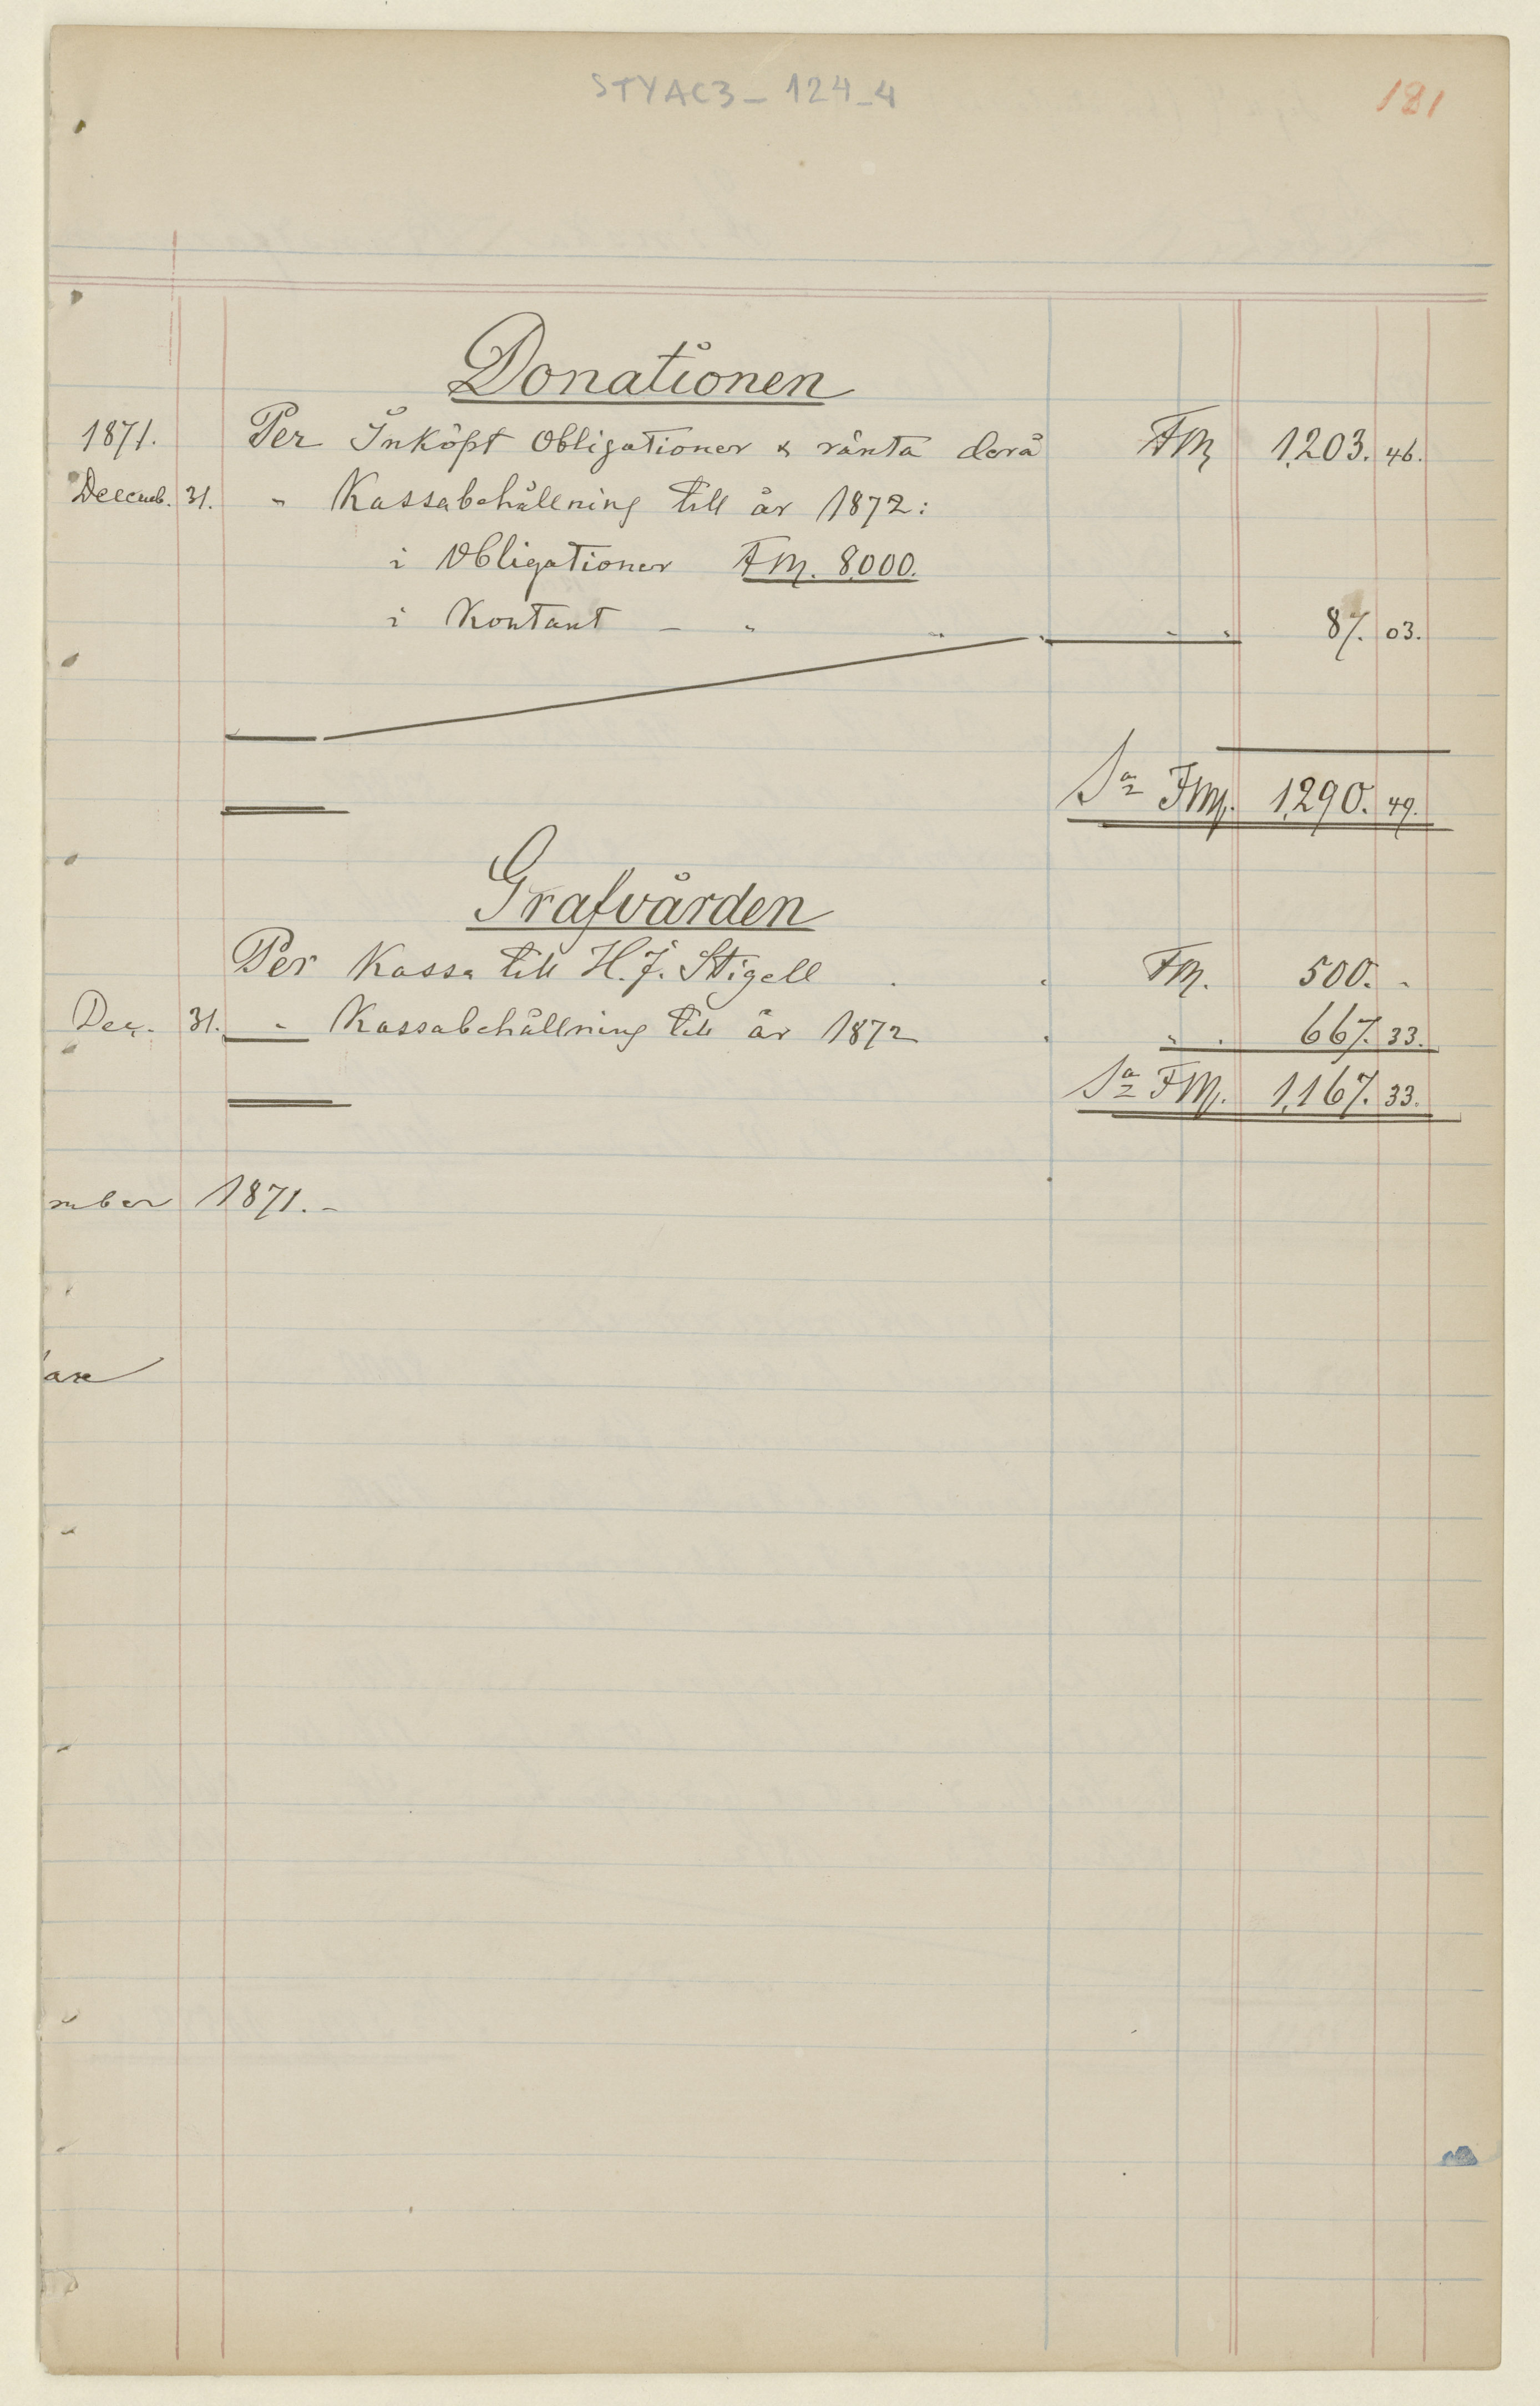 STYAC3-124-4 181
Donationen
1871. Per Inköpt Obligationer & ränta derå FM 1,203. 46.
Decemb. 31. " Kassabehållning till år 1872:
i Obligationer FM. 8,000.
i Kontant - " " " " " 87. 03.
Sa FM. 1,290. 49.
Grafvården
Per Kassa till H. J. Stigell . . FM. 500. -
Dec. 31. " Kassabehållning till år 1872 . " . 667. 33.
Sa FM. 1,167. 33.
mber 1871.-
are